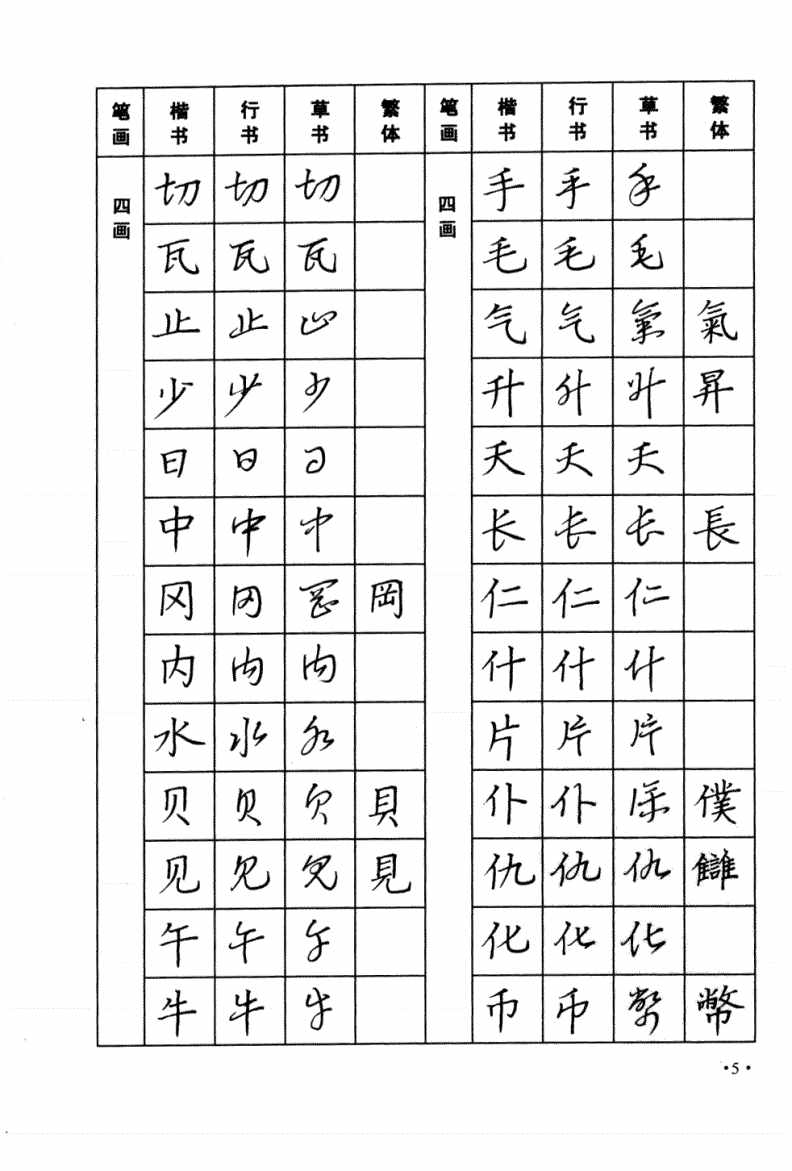 笔画 楷书 行书 草书 繁体 笔画 楷书 行书 草书 繁体
四画 切 切 切 四画 手 手 手
瓦 瓦 瓦 毛 毛 毛
止 止 止 气 气 氣 氣
少 少 少 升 升 升 昇
日 日 日 夭 夭 夭
中 中 中 长 长 长 長
冈 冈 岡 岡 仁 仁 仁
内 内 内 什 什 什
水 水 水 片 片 片
贝 贝 贝 貝 仆 仆 僕 僕
见 见 见 見 仇 仇 仇 讎
午 午 午 化 化 化
牛 牛 牛 币 币 幣 幣
·5·